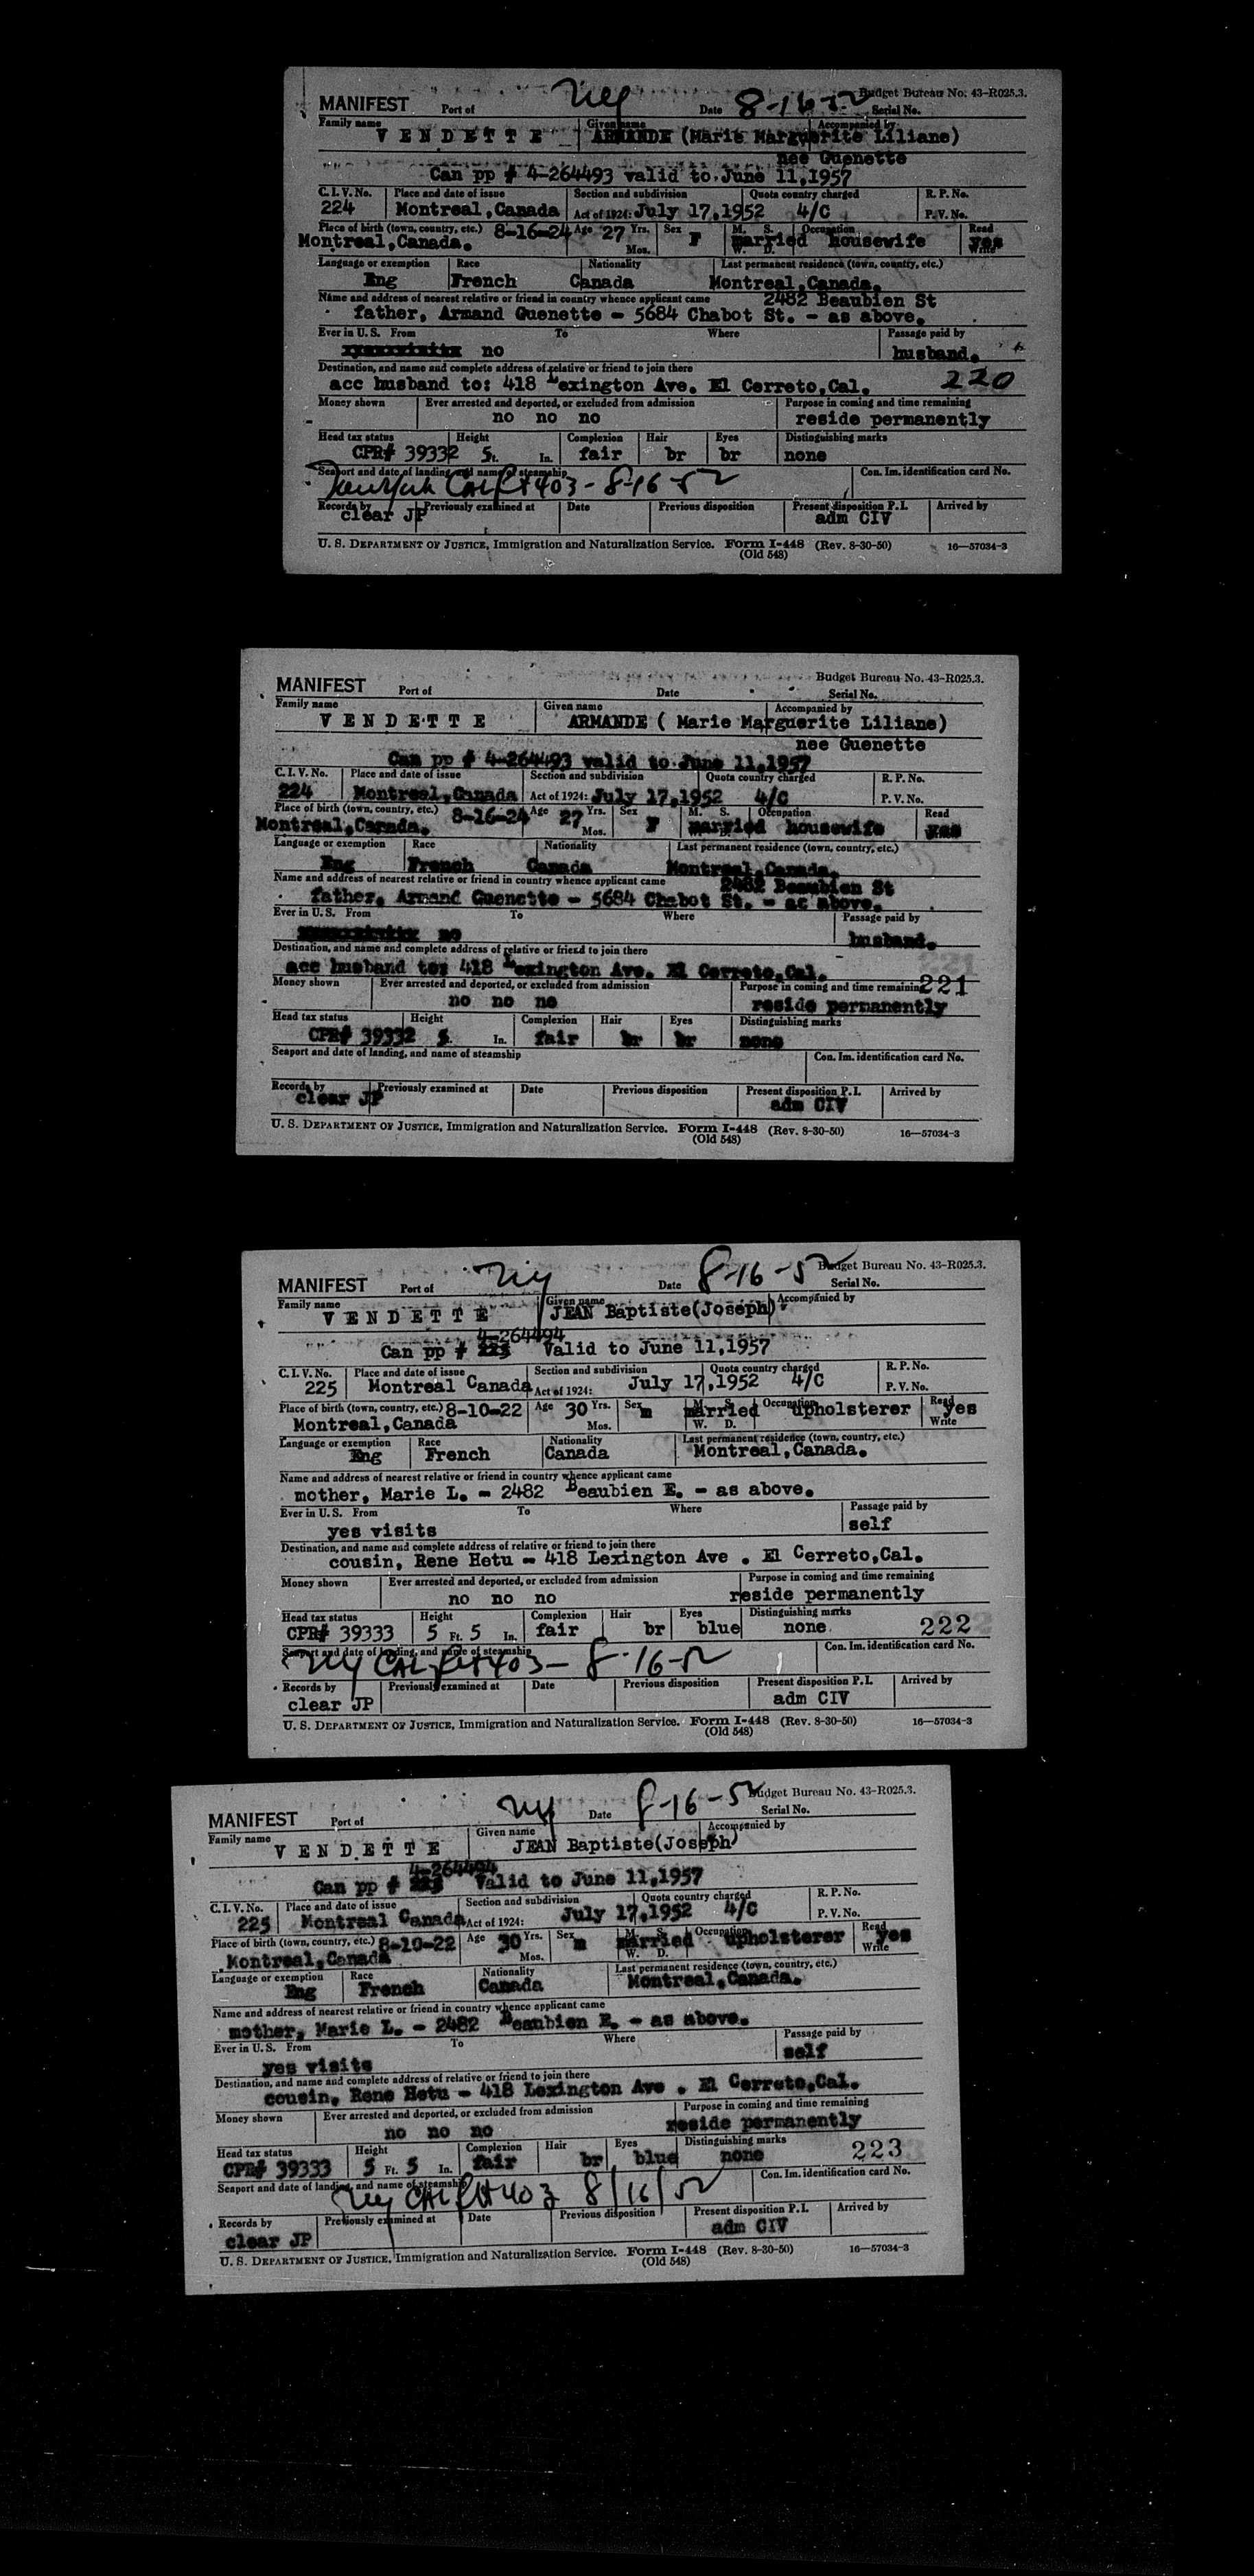 Budget Bureau No. 43-R025.3.
MANIFEST Port of NY Date 8-16-52 Serial No.
Family name Given name Accompanied by
V E N D E T T E ARMANDE (Marie Marguerite Liliane)
nee Guenette
Can pp # 4-264493 valid to June 11,1957
C. I. V. No. Place and date of issue Section and subdivision Quota country charged R. P. No.
224 Montreal,Canada Act of 1924: July 17,1952 4/C P. V. No.
Place of birth (town, country, etc.) 8-16-24 Age 27 Yrs. Sex M. S. Occupation Read
Montreal,Canada. Mos. F W. D. married housewife yes Write
Language or exemption Race Nationality Last permanent residence (town, country, etc.)
Eng French Canada Montreal,Canada.
Name and address of nearest relative or friend in country whence applicant came 2482 Beaubien St
father, Armand Guenette - 5684 Chabot St. - as above.
Ever in U. S. From To Where Passage paid by
no husband.
Destination, and name and complete address of relative or friend to join there
acc husband to: 418 Lexington Ave. El Cerreto,Cal. 220
Money shown Ever arrested and deported, or excluded from admission Purpose in coming and time remaining
no no no reside permanently
Head tax status Height Complexion Hair Eyes Distinguishing marks
CPR# 39332 5 Ft. In. fair br br none
Seaport and date of landing, and name of steamship Con. Im. identification card No.
New York CAL Flt 403 - 8-16-52
Records by Previously examined at Date Previous disposition Present disposition P. I. Arrived by
clear JP adm CIV
U. S. DEPARTMENT OF JUSTICE, Immigration and Naturalization Service. Form I-448 (Rev. 8-30-50) 16—57034-3
(Old 548)
Budget Bureau No. 43-R025.3.
MANIFEST Port of Date Serial No.
Family name Given name Accompanied by
V E N D E T T E ARMANDE ( Marie Marguerite Liliane)
nee Guenette
Can pp # 4-264493 valid to June 11,1957
C. I. V. No. Place and date of issue Section and subdivision Quota country charged R. P. No.
224 Montreal,Canada Act of 1924: July 17,1952 4/C P. V. No.
Place of birth (town, country, etc.) 8-16-24 Age 27 Yrs. Sex M. S. Occupation Read
Montreal,Canada. Mos. F married housewife yes
Language or exemption Race Nationality Last permanent residence (town, country, etc.)
Eng French Canada Montreal,Canada.
Name and address of nearest relative or friend in country whence applicant came 2482 Beaubien St
father, Armand Guenette - 5684 Chabot St. - as above.
Ever in U. S. From To Where Passage paid by
no husband.
Destination, and name and complete address of relative or friend to join there
acc husband to: 418 Lexington Ave. El Cerreto,Cal.
Money shown Ever arrested and deported, or excluded from admission Purpose in coming and time remaining 221
no no no reside permanently
Head tax status Height Complexion Hair Eyes Distinguishing marks
CPR# 39332 5 In. fair br br none
Seaport and date of landing, and name of steamship Con. Im. identification card No.
Records by Previously examined at Date Previous disposition Present disposition P. I. Arrived by
clear JP adm CIV
U. S. DEPARTMENT OF JUSTICE, Immigration and Naturalization Service. Form I-448 (Rev. 8-30-50) 16—57034-3
(Old 548)
Budget Bureau No. 43-R025.3.
MANIFEST Port of NY Date 8-16-52 Serial No.
Family name Given name Accompanied by
V E N D E T T E JEAN Baptiste(Joseph)
4-264494
Can pp # 225 Valid to June 11,1957
C. I. V. No. Place and date of issue Section and subdivision Quota country charged R. P. No.
225 Montreal Canada Act of 1924: July 17,1952 4/C P. V. No.
Place of birth (town, country, etc.) 8-10-22 Age 30 Yrs. Sex m M. S. married Occupation upholsterer Read yes
Montreal,Canada Mos. W. D. Write
Language or exemption Race Nationality Last permanent residence (town, country, etc.)
Eng French Canada Montreal,Canada.
Name and address of nearest relative or friend in country whence applicant came
mother, Marie L. - 2482 Beaubien E. - as above.
Ever in U. S. From To Where Passage paid by
yes visits self
Destination, and name and complete address of relative or friend to join there
cousin, Rene Hetu - 418 Lexington Ave . El Cerreto,Cal.
Money shown Ever arrested and deported, or excluded from admission Purpose in coming and time remaining
no no no reside permanently
Head tax status Height Complexion Hair Eyes Distinguishing marks 222
CPR# 39333 5 Ft. 5 In. fair br blue none
Seaport and date of landing, and name of steamship Con. Im. identification card No.
NY CAL Flt 403 - 8-16-52
Records by Previously examined at Date Previous disposition Present disposition P. I. Arrived by
clear JP adm CIV
U. S. DEPARTMENT OF JUSTICE, Immigration and Naturalization Service. Form I-448 (Rev. 8-30-50) 16—57034-3
(Old 548)
Budget Bureau No. 43-R025.3.
MANIFEST Port of NY Date 8-16-52 Serial No.
Family name Given name Accompanied by
V E N D E T T E JEAN Baptiste(Joseph)
4-264494
Can pp # 225 Valid to June 11,1957
C. I. V. No. Place and date of issue Section and subdivision Quota country charged R. P. No.
225 Montreal Canada Act of 1924: July 17,1952 4/C P. V. No.
Place of birth (town, country, etc.) 8-10-22 Age 30 Yrs. Sex m M. S. married Occupation upholsterer Read yes
Montreal,Canada Mos. W. D. Write
Language or exemption Race Nationality Last permanent residence (town, country, etc.)
Eng French Canada Montreal,Canada.
Name and address of nearest relative or friend in country whence applicant came
mother, Marie L. - 2482 Beaubien E. - as above.
Ever in U. S. From To Where Passage paid by
yes visits self
Destination, and name and complete address of relative or friend to join there
cousin, Rene Hetu - 418 Lexington Ave . El Cerreto,Cal.
Money shown Ever arrested and deported, or excluded from admission Purpose in coming and time remaining
no no no reside permanently
Head tax status Height Complexion Hair Eyes Distinguishing marks 223
CPR# 39333 5 Ft. 5 In. fair br blue none
Seaport and date of landing, and name of steamship Con. Im. identification card No.
NY CAL Flt 403 8/16/52
Records by Previously examined at Date Previous disposition Present disposition P. I. Arrived by
clear JP adm CIV
U. S. DEPARTMENT OF JUSTICE, Immigration and Naturalization Service. Form I-448 (Rev. 8-30-50) 16—57034-3
(Old 548)